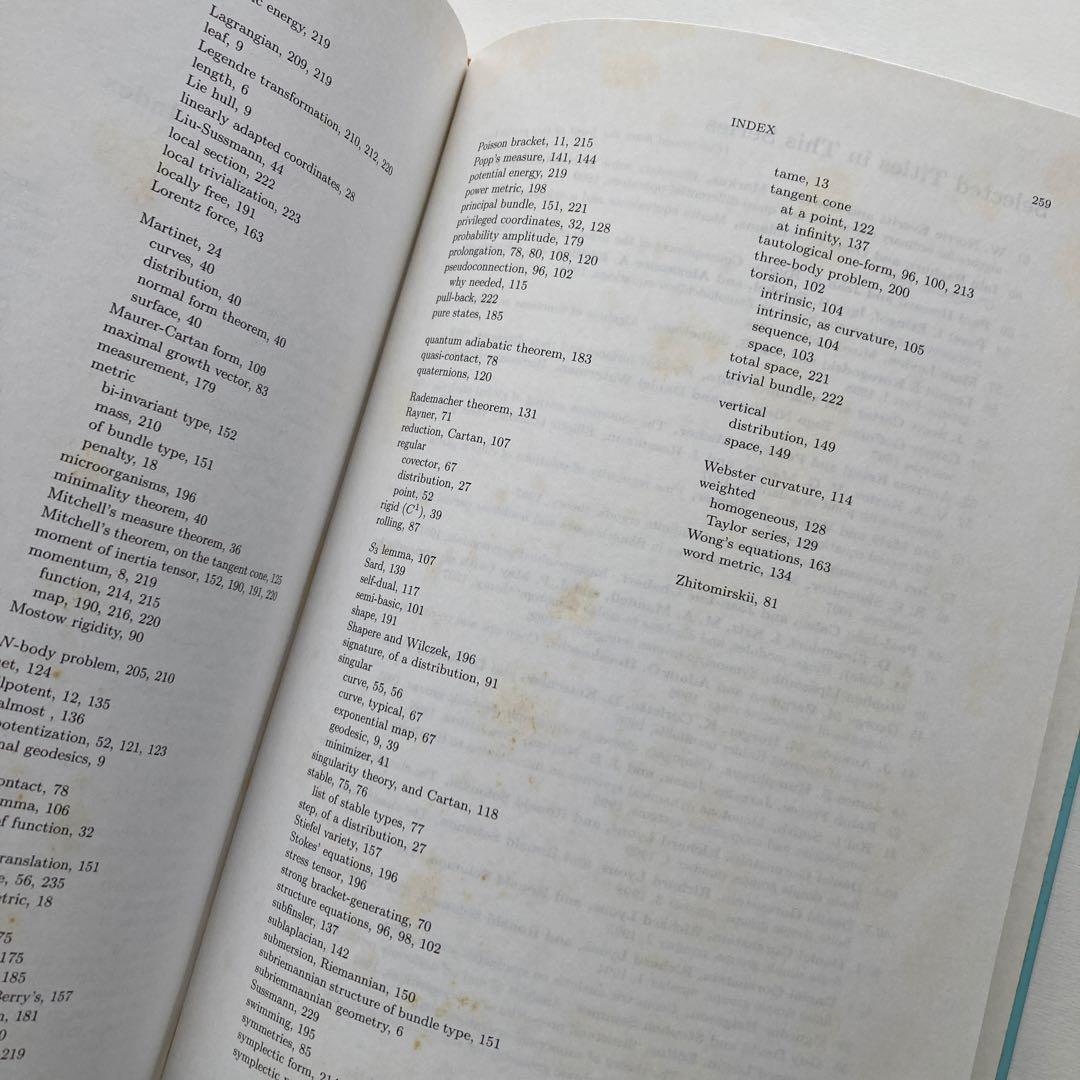 energy, 219
Lagrangian, 209, 219
leaf, 9
Legendre transformation, 210, 212, 220
length, 6
Lie hull, 9
linearly adapted coordinates, 28
Liu-Sussmann, 44
local section, 222
local trivialization, 223
locally free, 191
Lorentz force, 163
Martinet, 24
curves, 40
distribution, 40
normal form theorem, 40
surface, 40
Maurer-Cartan form, 109
maximal growth vector, 83
measurement, 179
metric
bi-invariant type, 152
mass, 210
of bundle type, 151
penalty, 18
microorganisms, 196
minimality theorem, 40
Mitchell's measure theorem, 36
Mitchell's theorem, on the tangent cone, 125
moment of inertia tensor, 152, 190, 191, 220
momentum, 8, 219
function, 214, 215
map, 190, 216, 220
Mostow rigidity, 90
N-body problem, 205, 210
et, 124
lpotent, 12, 135
almost , 136
potentization, 52, 121, 123
nal geodesics, 9
ontact, 78
mma, 106
of function, 32
ranslation, 151
e, 56, 235
tric, 18
75
175
185
Berry's, 157
n, 181
0
219
INDEX
259
Poisson bracket, 11, 215
Popp's measure, 141, 144
potential energy, 219
power metric, 198
principal bundle, 151, 221
privileged coordinates, 32, 128
probability amplitude, 179
prolongation, 78, 80, 108, 120
pseudoconnection, 96, 102
why needed, 115
pull-back, 222
pure states, 185
quantum adiabatic theorem, 183
quasi-contact, 78
quaternions, 120
Rademacher theorem, 131
Rayner, 71
reduction, Cartan, 107
regular
covector, 67
distribution, 27
point, 52
rigid (C¹), 39
rolling, 87
S₃ lemma, 107
Sard, 139
self-dual, 117
semi-basic, 101
shape, 191
Shapere and Wilczek, 196
signature, of a distribution, 91
singular
curve, 55, 56
curve, typical, 67
exponential map, 67
geodesic, 9, 39
minimizer, 41
singularity theory, and Cartan, 118
stable, 75, 76
list of stable types, 77
step, of a distribution, 27
Stiefel variety, 157
Stokes' equations, 196
stress tensor, 196
strong bracket-generating, 70
structure equations, 96, 98, 102
subfinsler, 137
sublaplacian, 142
submersion, Riemannian, 150
subriemannian structure of bundle type, 151
subriemmannian geometry, 6
Sussmann, 229
swimming, 195
symmetries, 85
symplectic form, 214
symplectic
tame, 13
tangent cone
at a point, 122
at infinity, 137
tautological one-form, 96, 100, 213
three-body problem, 200
torsion, 102
intrinsic, 104
intrinsic, as curvature, 105
sequence, 104
space, 103
total space, 221
trivial bundle, 222
vertical
distribution, 149
space, 149
Webster curvature, 114
weighted
homogeneous, 128
Taylor series, 129
Wong's equations, 163
word metric, 134
Zhitomirskii, 81